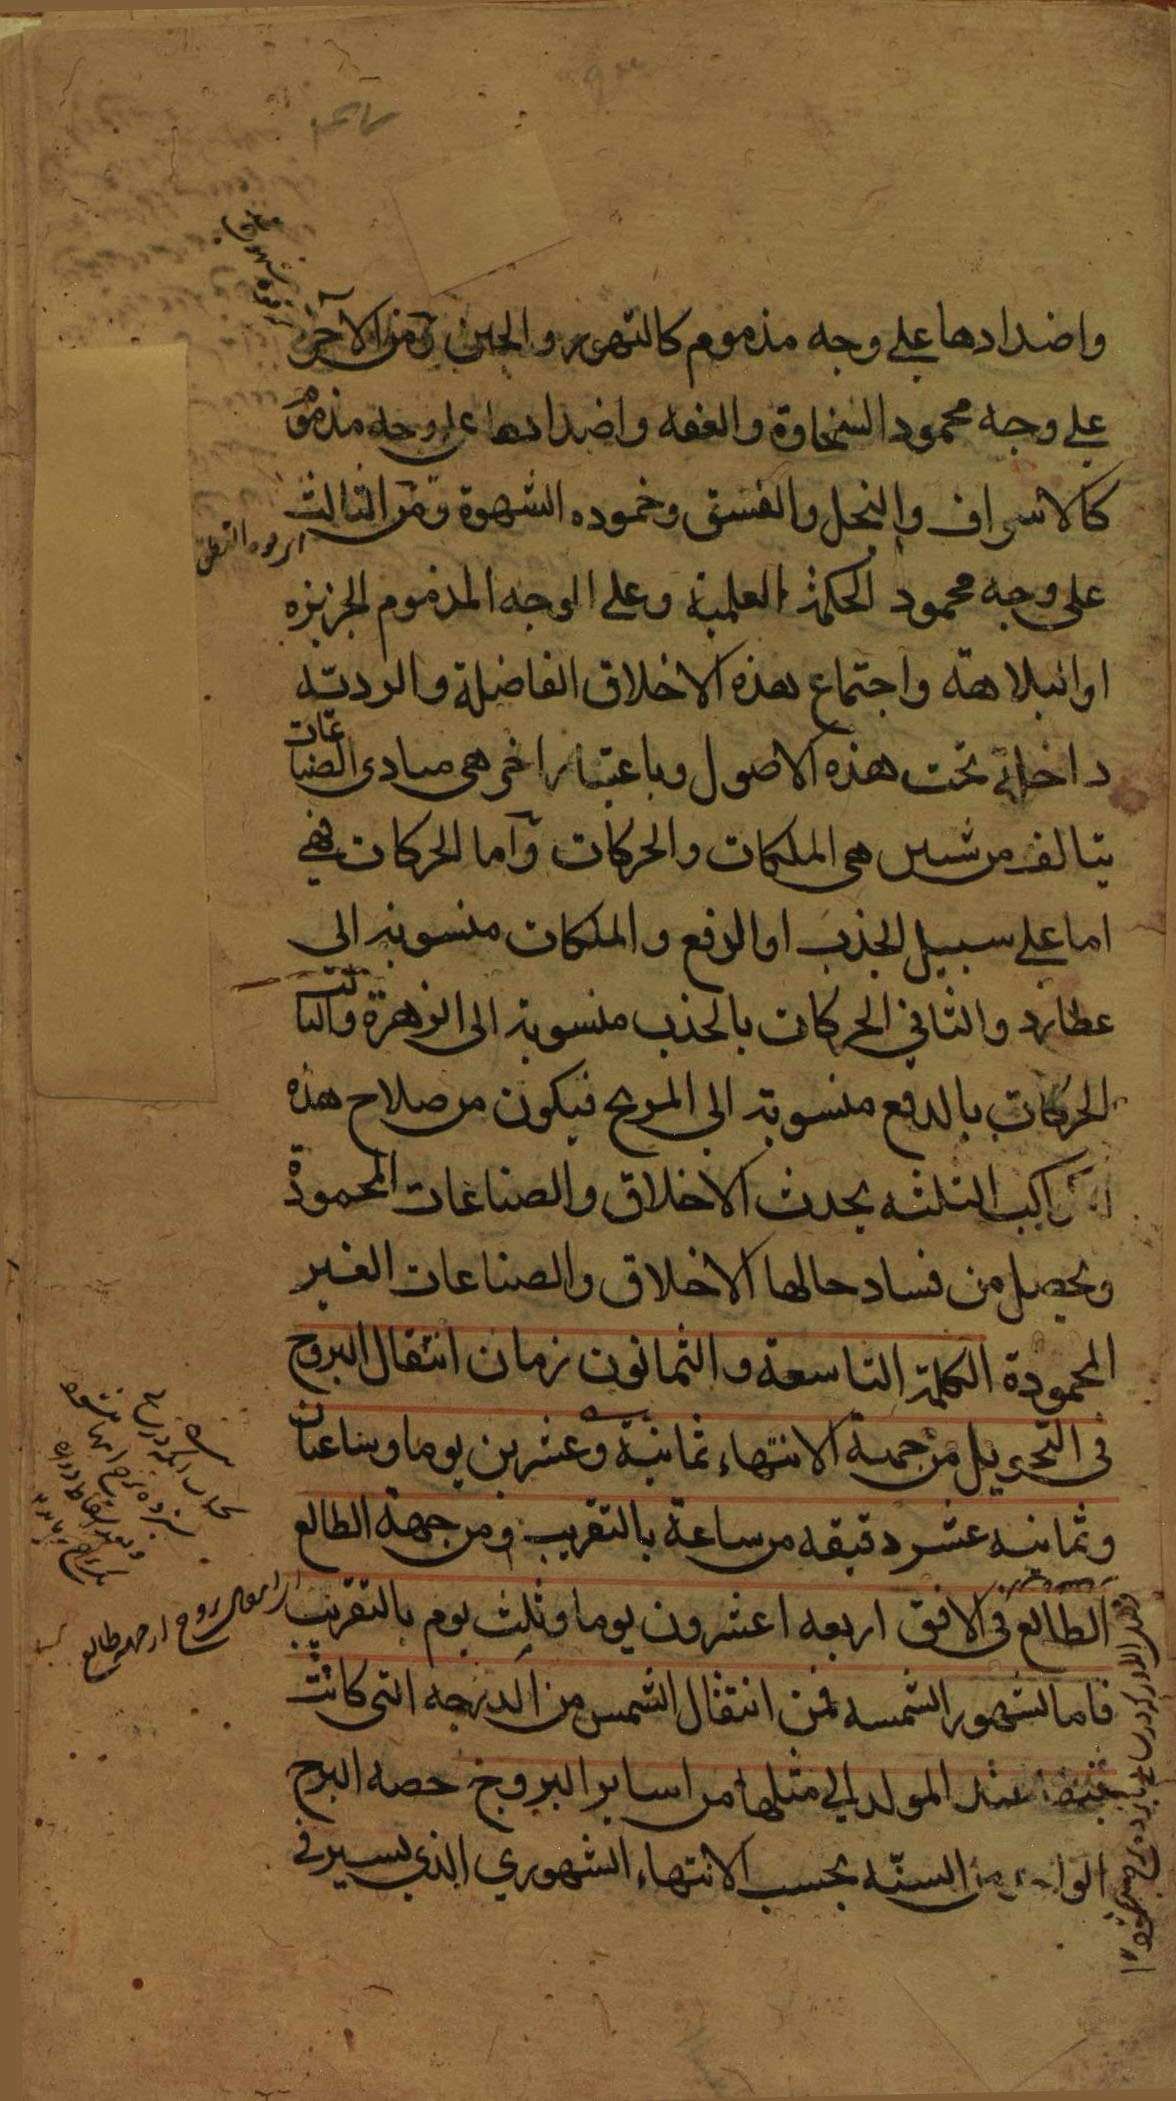 واضدادها على وجه مذموم كالتهور والجبن ومن الآخر
على وجه محمود السخاوة والعفه واضدادها على وجه مذموم
كالاسراف والبخل والفسق وخموده الشهوة ومن الثالث
على وجه محمود الحكمة العلمية وعلى الوجه المذموم الجربزه
او البلاهة واجتماع هذه الاخلاق الفاضلة والرديّه
داخلة تحت هذه الاصول وباعتبار اخر هى مبادى الصناعات
يتالف من شيين هى الملكات والحركات وآما الحركات فهي
اما على سبيل الجذب او الدفع والملكات منسوبة الى
عطارد والثاني الحركات بالجذب منسوبة الى الزهرة والثالث
الحركات بالدفع منسوبة الى المريخ فيكون من صلاح هذه
الكواكب الثلثه يحدث الاخلاق والصناعات المحمودة
ويحصل من فساد حالها الاخلاق والصناعات الغير
المحمودة الكلمة التاسعة والثمانون زمان انتقال البروج
فى التحويل من جهة الانتهاء ثمانية وعشرين يوما وساعتان
وثمانيه عشر دقيقه من ساعة بالتقريب ومن جهة الطالع
الطالع فى الافق اربعه اعشرون يوما وثلث يوم بالتقريب
فاما الشهور الشمسه فمن انتقال الشمس من الدرجه التى كانت
عند المولد الي مثلها من اساير البروج حصه البرج
الواحد من السنّه بحسب الانتهاء الشهوري الذي يسير فى